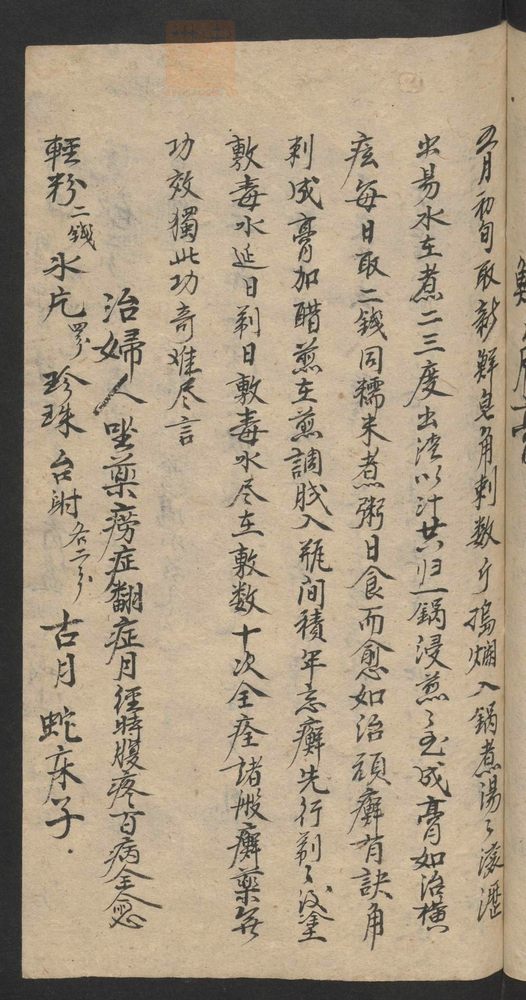 五月初旬取新鮮皂角刺数斤搗爛入锅煮湯〻滚瀝
出易水在煮二三度出渣以汁共归一锅浸煎〻至成膏如治横
痃每日取二錢同糯米煮粥日食而愈如治頑癬有訣角
刺成膏加醋煎在煎調膩入瓶间積年恶癬先行剃〻後塗
敷毒水延日剃日敷毒水尽在敷数十次全痊諸般癬藥無
功效獨此功奇难尽言
治婦人坐藥痨症翻症月經時腹疼百病全愈
輕粉二錢 氷片四分 珍珠 台附各二分 古月 蛇床子